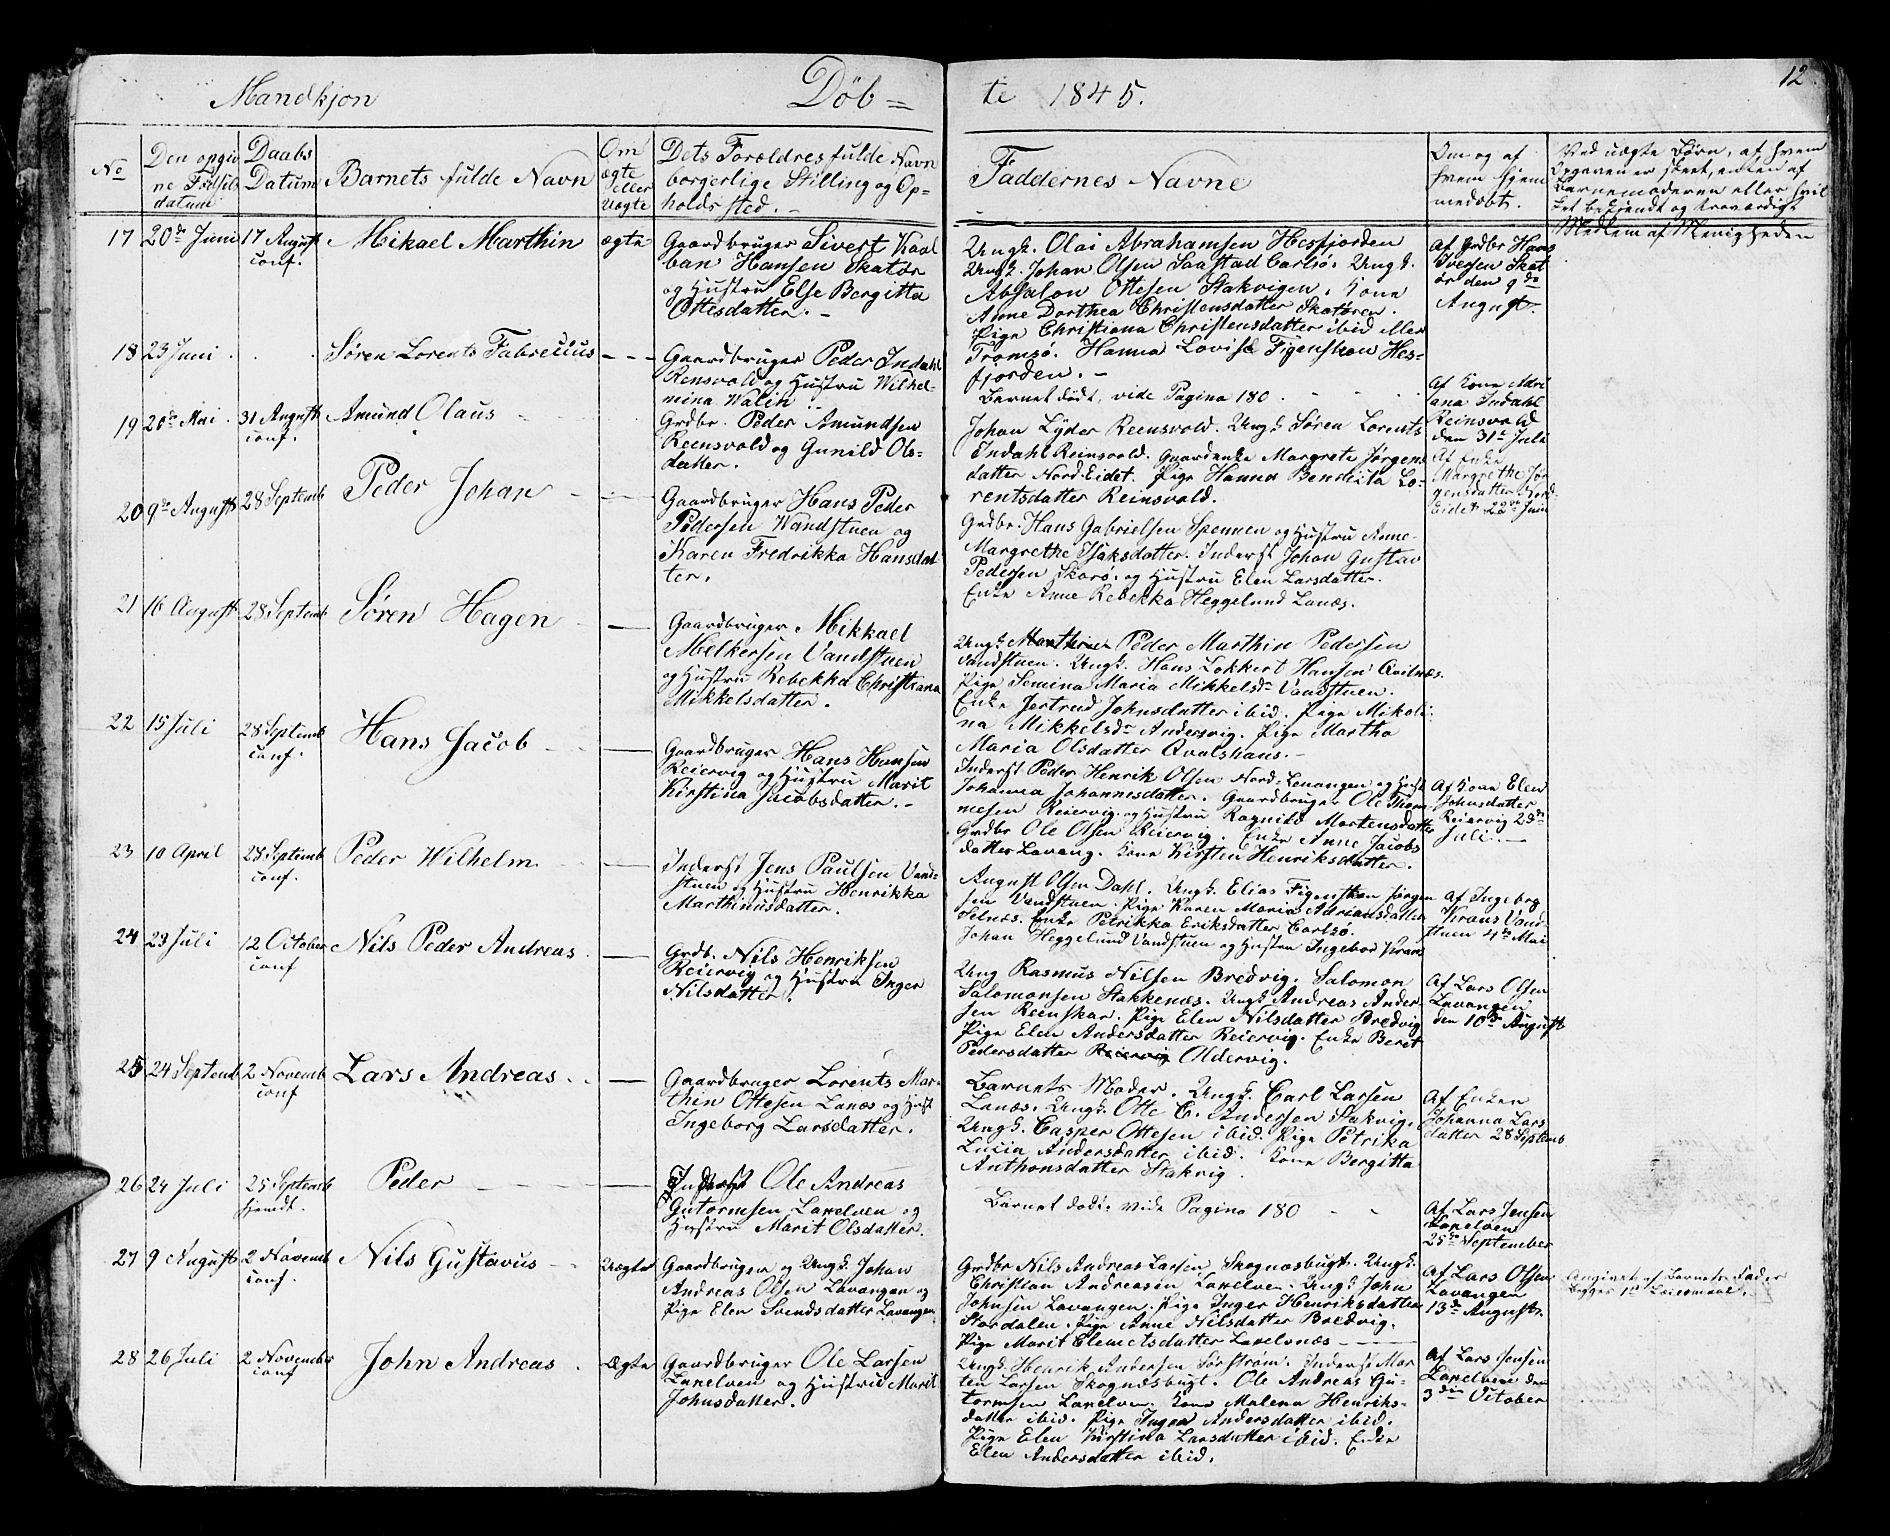 Mandkjøn Døb= te 1845. 12
No
Den opgiv
ne Fødsels
datum
Daabs
Datum
Barnets fulde Navn
Om
ægte
eller
Uægte
Dets Forældres fulde Navn
borgerlige Stilling og Op=
holdssted.
Faddernes Navne
Om og af
hvem hjem
medøbt.
Ved uægte Børn, af hvem
Opgaven er skeet, enten af
Barnemoderen eller hvil
ket bekjendt og troværdigt
Medlem af Menigheden
17 20de Juni
17 August
conf.
Mikael Marthin
ægte
Gaardbruger Sivert Kaal
ban Hansen Skatør
og Hustru Else Bergitta
Ottesdatter.
Ungk. Olai Abrahamsen Hesfjorden
Ungk. Johan Olsen Saastad Carlsø. Ungk.
Absalon Ottesen Stakvigen. Kone
Anne Dorthea Christensdatter Skatøren.
Pige Christiana Christensdatter ibid eller
Tromsø. Hanna Lovise Figenskou Hes=
fjorden.
Af Grdbr Hans
Iversen Skat
ør den 9de
August
18 23 Juni
Søren Lorents Fabrecius
Gaardbruger Peder Indahl
Rensvold og Hustru Wilhel=
mina Walin
Barnet dødt, vide Pagina 180
Af Kone Adri
ana Indahl
Reinsvold
den 31te Juli
19 20de Mai
31 August
conf.
Amund Olaus
Grdbr. Peder Amundsen
Reensvold og Gunild Ols=
datter.
Johan Lyder Reensvold. Ungk. Søren Lorents
Indahl Reinsvold. Gaardenke Margrete Jørgens
datter Nord-Eidet. Pige Hanna Bendicta Lo=
rentsdatter Reinsvold.
Af Enke
Margrethe Jør
gensdatter Nord
Eidet 22de Juni
20 9de August
28 Septemb
Peder Johan
Gaardbruger Hans Peder
Pedersen Vandstuen og
Karen Fredrikka Hansdat
ter.
Grdbr. Hans Gabrielsen Spennen og Hustru Anne
Margrethe Isaksdatter. Inderst Johan Gustav
Pedersen Skorø. og Hustru Elen Larsdatter.
Enke Anne Rebekka Heggelund Lanæs.
21 16 August
28 Septemb
Søren Hagen
Gaardbruger Mikkael
Melkersen Vandstuen
og Hustru Rebekka Christiana
Mikkelsdatter.
Ungk. Peder Marthin Pedersen
Vandstuen. Ungk. Hans Lokkert Hansen Qvitnæs.
Pige Semina Maria Mikkelsd. Vandstuen.
Enke Jertrud Johnsdatter ibid. Pige Mikoli=
na Mikkelsd. Andersvig. Pige Martha
Maria Olsdatter Qvalshaus.
22 15 Juli
28 Septemb
conf.
Hans Jacob
Gaardbruger Hans Hansen
Reiervig og Hustru Marit
Kirstina Jacobsdatter.
Inderst Peder Henrik Olsen Nord-Lenangen og Hust
Johanna Johannesdatter. Gaardbruger Ole Thom
mesen Reiervig og Hustru Ragnild Mortensdatter
Grdbr Ole Olsen Reiervig. Enke Anne Jacobs
datter Lavang. Kone Kirsten Henriksdatter.
Af Kone Elen
Johnsdatter
Reiervig 23de
Juli.
23 10 April
28 Septemb
conf.
Peder Wilhelm
Inderst Jens Paulsen Vand=
stuen og Hustru Henrikka
Marthinusdatter.
August Olsen Dahl. Ungk. Elias Figenskou Jørgen
sen Vandstuen. Pige Karen Maria Adriansdatter
Selnæs. Enke Petrikka Eriksdatter Carlsø.
Johan Heggelund Vandstuen og Hustru Ingebor Kraus
Af Ingeborg
Kraus Vand=
stuen 4de Mai
24 23 Juli
12 October
conf
Nils Peder Andreas
Grdb. Nils Henriksen
Reiervig og Hustru Inger
Nilsdatter.
Ung Rasmus Nilsen Bredvig. Salomon
Salomonsen Stakkenæs. Ungk. Andreas Ander
sen Reinskar. Pige Elen Nilsdatter Bredvig
Pige Elen Andersdatter Reiervig. Enke Beret
Pedersdatter Reiervig Oldervig.
Af Lars Olsen
Lavangen
den 10de August
25 24 Septemb
2 Novemb
conf
Lars Andreas
Gaardbruger Lorents Mar=
thin Ottesen Lanæs og Hust
Ingeborg Larsdatter.
Barnets Moder. Ungk. Carl Larsen
Lanæs. Ungk. Otte C. Andersen Stakvig.
Ungk. Casper Ottesen ibid. Pige Petrika
Lucia Andersdatter ibid. Kone Bergitta
Anthonsdatter Stakvig.
Af Enken
Johanna Lars
datter 28 Septemb
26 24 Juli
25 Septemb
hjemdt.
Peder
Inderst Ole Andreas
Gutormsen Laxelven og
Hustru Marit Olsdatter.
Barnet død. vide Pagina 180
Af Lars Jensen
Laxelven
25de September
27 9 August
2 Novemb
conf.
Nils Gustavus
Uægte
Gaardbruger og Ungk. Johan
Andreas Olsen Lavangen og
Pige Elen Svendsdatter Lavangen
Grdbr Nils Andreas Larsen Skognæsbugt. Ungk.
Christian Andreasen Laxelven. Ungk. John
Johnsen Lavangen. Pige Inger Henriksdatter
Stordalen. Pige Anne Nilsdatter Bredvig.
Pige Marit Clemetsdatter Laxelvnæs
Af Lars Olsen
Lavangen
13de August.
Angivet af Barnets Fader
Begges 1ste Leiermaal.
28 26 Juli
2 November
conf
John Andreas
Ægte
Gaardbruger Ole Larsen
Laxelven og Hustru Marit
Johnsdatter.
Ungk. Henrik Andersen Sørstrøm. Inderst Mor
ten Larsen Skognæsbugt. Ole Andreas Gu=
tormsen Laxelven. Kone Malena Henriks=
datter ibid. Pige Inger Andersdatter ibid.
Pige Elen Kirstina Larsdatter ibid. Enke
Elen Andersdatter ibid.
Af Lars Jensen
Laxelven den
3die October